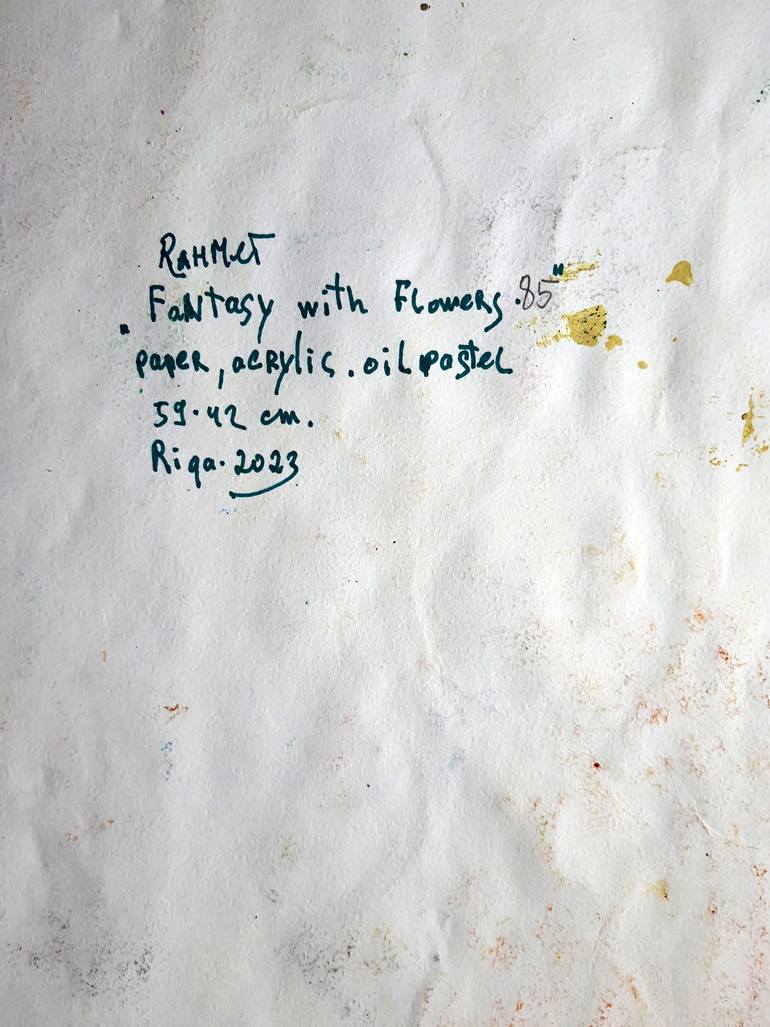 Rahmet
„Fantasy with Flowers.85"
paper, acrylic. oil pastel
59.42 cm.
Riga.2023